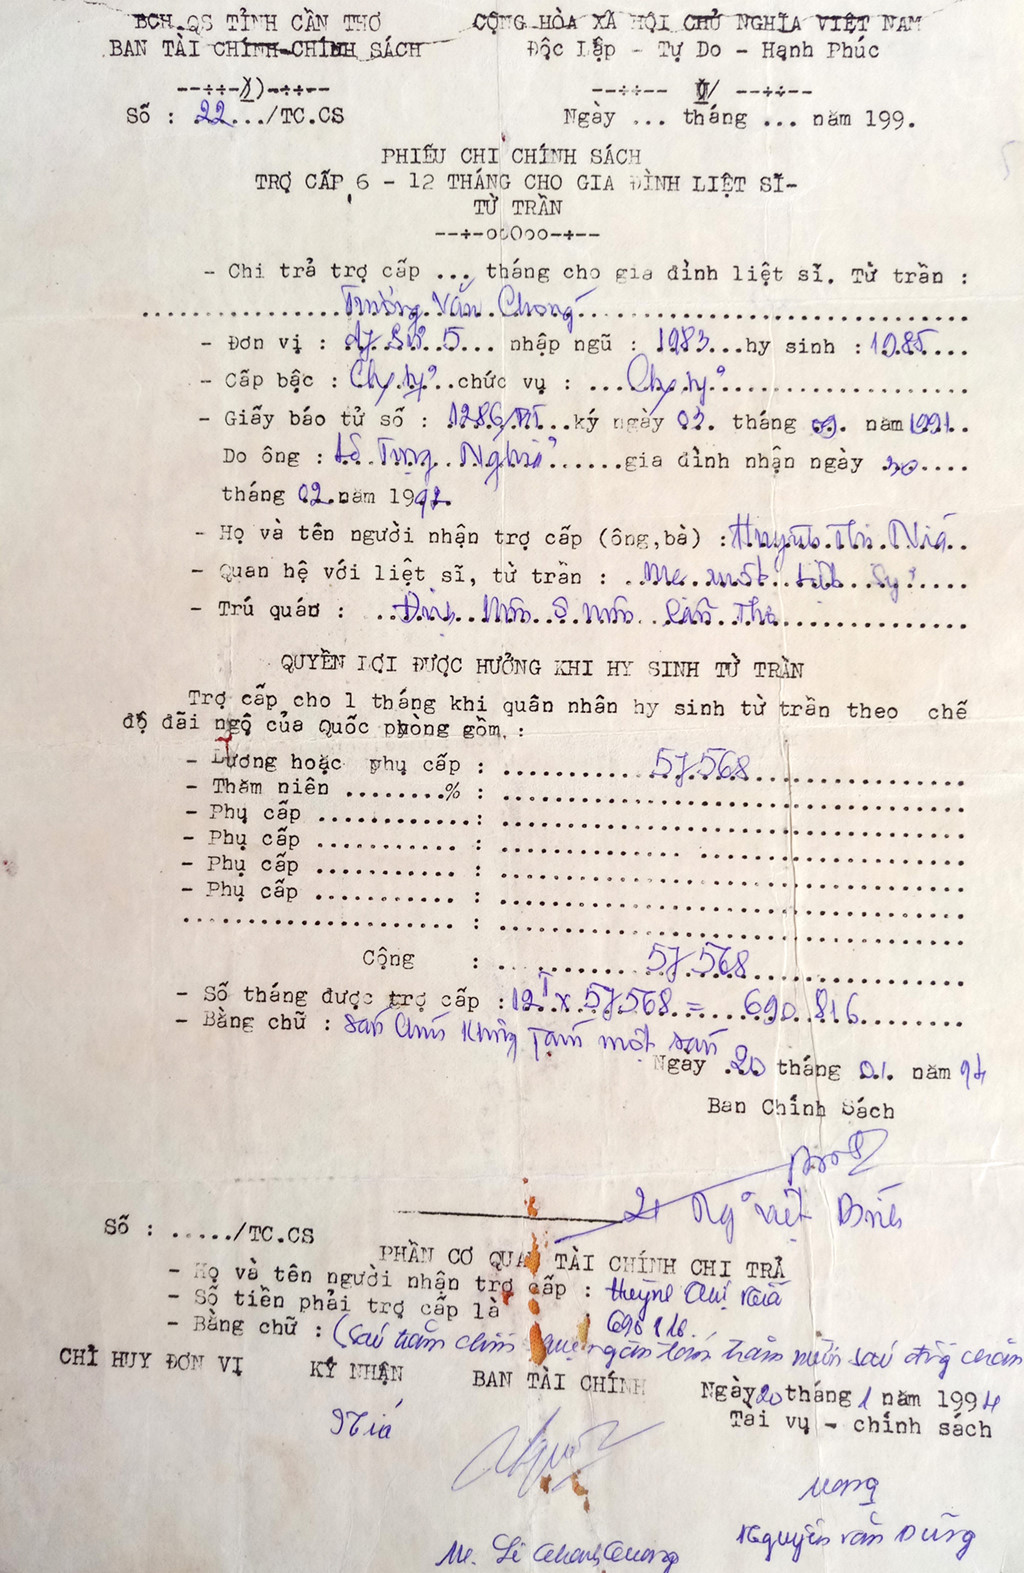 BCH.QS TỈNH CẦN THƠ
BAN TÀI CHÍNH-CHÍNH SÁCH
Số : 22.../TC.CS
CỘNG HÒA XÃ HỘI CHỦ NGHĨA VIỆT NAM
Độc Lập - Tự Do - Hạnh Phúc
Ngày ... tháng ... năm 199.
PHIẾU CHI CHÍNH SÁCH
TRỢ CẤP 6 - 12 THÁNG CHO GIA ĐÌNH LIỆT SĨ-
TỪ TRẦN
--÷-ooOoo-÷--
- Chi trả trợ cấp ... tháng cho gia đình liệt sĩ. Từ trần :
Trương Văn Chong
- Đơn vị : Sư 5... nhập ngũ : 1983...hy sinh : 1985...
- Cấp bậc : ...chức vụ : ...
- Giấy báo tử số : 1286/...ký ngày 03. tháng 09. năm 1991..
Do ông : Lê Trọng Nghĩa......gia đình nhận ngày 30....
tháng 02.năm 1992.
- Họ và tên người nhận trợ cấp (ông,bà) : Huỳnh Thị Niá..
- Quan hệ với liệt sĩ, từ trần : Mẹ ruột liệt sỹ
- Trú quán : Môn Ô Môn Cần Thơ
QUYỀN LỢI ĐƯỢC HƯỞNG KHI HY SINH TỪ TRẦN
Trợ cấp cho 1 tháng khi quân nhân hy sinh từ trần theo chế
độ đãi ngộ của Quốc phòng gồm. :
- Lương hoặc phụ cấp : 57.568
- Thăm niên ........% :
- Phụ cấp ............:
- Phụ cấp ........... :
- Phụ cấp ........... :
- Phụ cấp ........... :
..................... :
Cộng : 57.568
- Số tháng được trợ cấp : 12T x 57.568 = 690.816
- Bằng chữ : Sáu chín không tám một sáu
Ngày 20 tháng 01. năm 94
Ban Chính Sách
Ngô Việt
Số : ...../TC.CS
PHẦN CƠ QUAN TÀI CHÍNH CHI TRẢ
- Họ và tên người nhận trợ cấp : Huỳnh Thị Niá
- Số tiền phải trợ cấp là : 690 816.
- Bằng chữ : (Sáu trăm chín mươi ngàn tám trăm mười sáu đồng chẵn
CHỈ HUY ĐƠN VỊ KÝ NHẬN BAN TÀI CHÍNH
Niá
Ngày 20 tháng 1 năm 1994
Tài vụ - chính sách
Nguyễn Văn Dũng